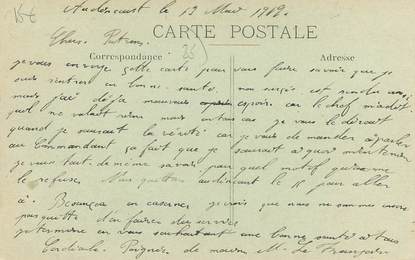 Audincourt le 13 Mai 1919.
CARTE POSTALE
Chers Patrons.
Correspondance
Adresse
je vous envoye cette carte pour vous faire savoir que je
suis rentré en bonne santé. mon sursis est
mais j'ai déjà mauvais espoir. car le chef m'a dit
qu'il ne valait rien mais en tous cas je vous le dirait
quand je saurait la vérité car je vais demander à parler
au Commandant ça fait que je saurait à quoi m'en tenir
je veux tout de même savoir pour quel motif qu'on me
le refuse. Nous quittons audincourt le 15 pour aller
à Besançon en caserne je crois que nous ne sommes encore
pas quitte d'en faire du service
je termine en vous souhaitant une bonne santé à tous
Cordiale Poignée de mains M. Le Français